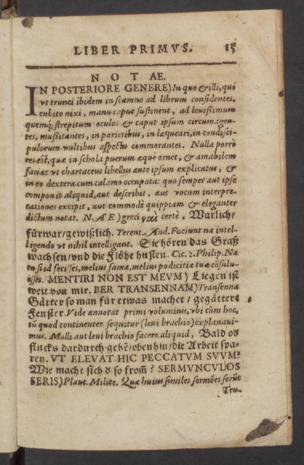 LIBER PRIMVS. 15
NOTAE.
IN POSTERIORE GENERE) In quo & illi, qui
vt trunci ibidem in scamno ad librum considentes,
cubito nixi, manu caput sustinent, ad leuissimum
quemq; strepitum oculos & caput ipsum circum
tes, mussitantes, in parietibus, in laqueari, in condisci-
pulorum vultibus aspectu commorantes. Nulla porrò
res est, quæ in schola puerum æque ornet, & amabilem
faciat vt chartaceus libellus ante ipsum explicatus, &
in eo dextera cum calamo occupata: quo semper aut ipse
componit aliquid, aut describit, aut vocum interpre-
tationes excipit, aut commodè quippiam & eleganter
dictum notat. NÆ) græci certè, Warlich/
fürwar/gewißlich. Terent. And. Faciunt næ intel-
ligendo vt nihil intelligant. Sie hören das Graß
wachsen/vnd die Flöhe husten. Cic. 2. Philip. Næ
tu si id fecisses, melius famæ, melius pudicitiæ tuæ cōsulu-
isses. MENTIRI NON EST MEVM) Liegen ist
weit von mir. PER TRANSENNAM) Transenna
Gätter so man für etwas machet/ gegätterte
Fenster. Vide annotat primi voluminis, vbi cùm hoc,
tū quod continenter sequitur (leui brachio) explanaui-
mus. Molli aut leui brachio facere aliquid, Bald oß
flucks dardurch gehē/obenhin/die Arbeit spa-
ren. VT ELEVAT HIC PECCATVM SVVM?
Wie macht sich d so from? SERMVNCVLOS
SERIS) Plaut. Milite. Quæ huius similes sermōes serūt
Tru.